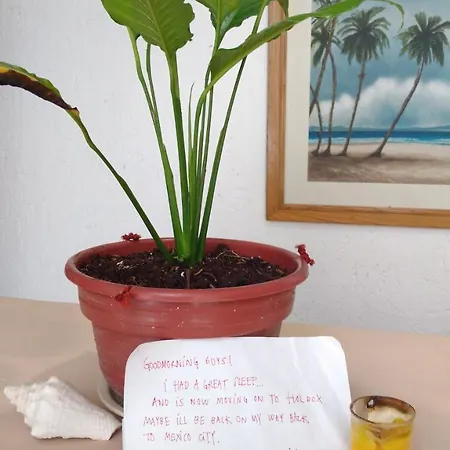 GOODMORNING GUYS!
I HAD A GREAT SLEEP...
AND IS NOW MOVING ON TO HOLBOX
MAYBE I'LL BE BACK ON MY WAY BACK
TO MEXICO CITY.